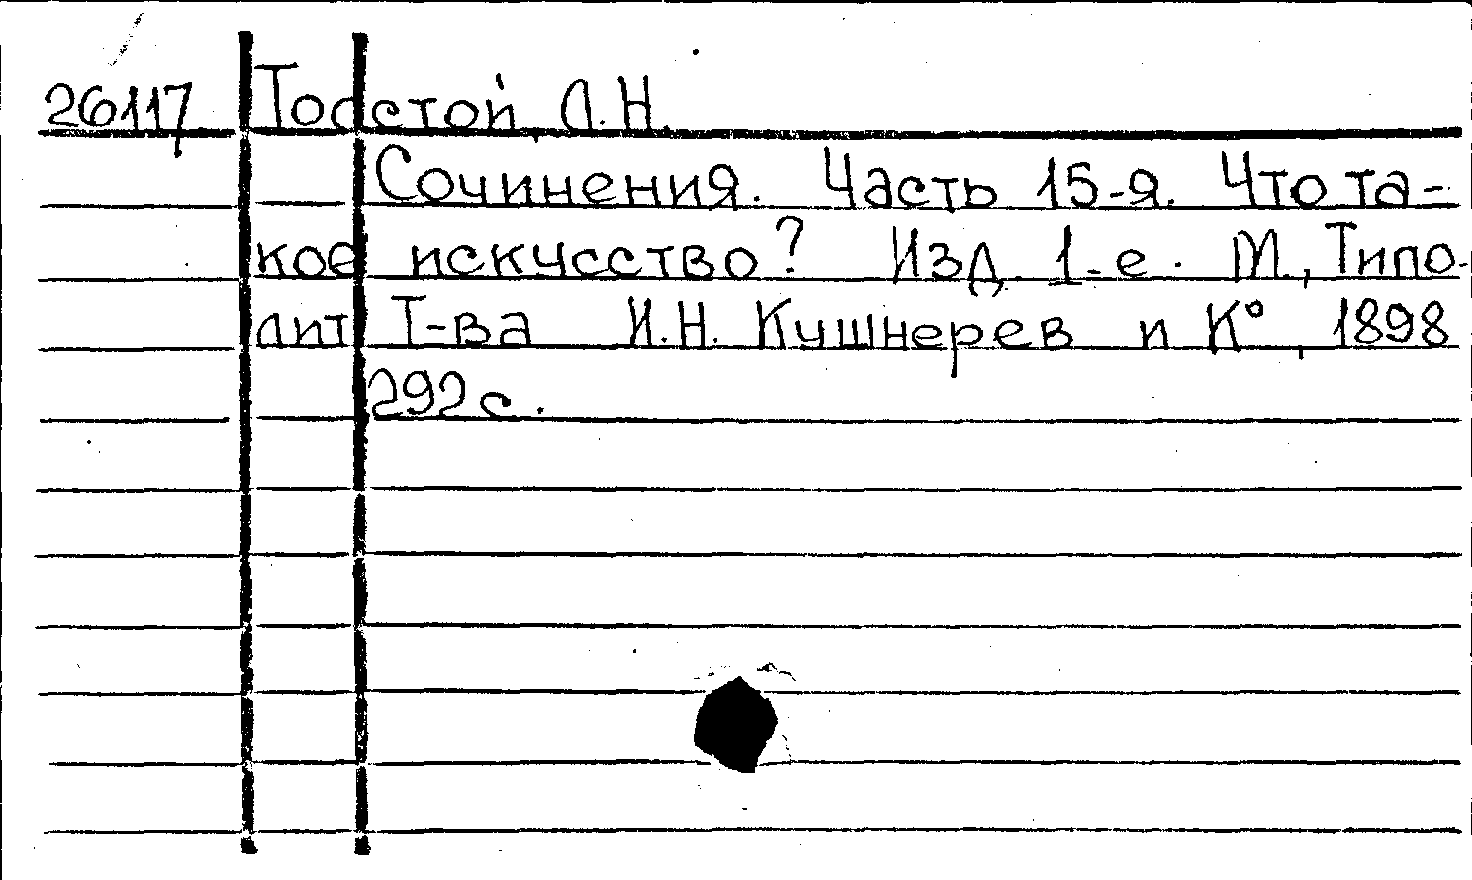 26117 Толстой, Л.Н.
Сочинения. Часть 15-я. Что та-
кое искусство? Изд. 1-е. М., Типо-
лит. Т-ва И.Н. Кушнерев и К°, 1898
292 с.